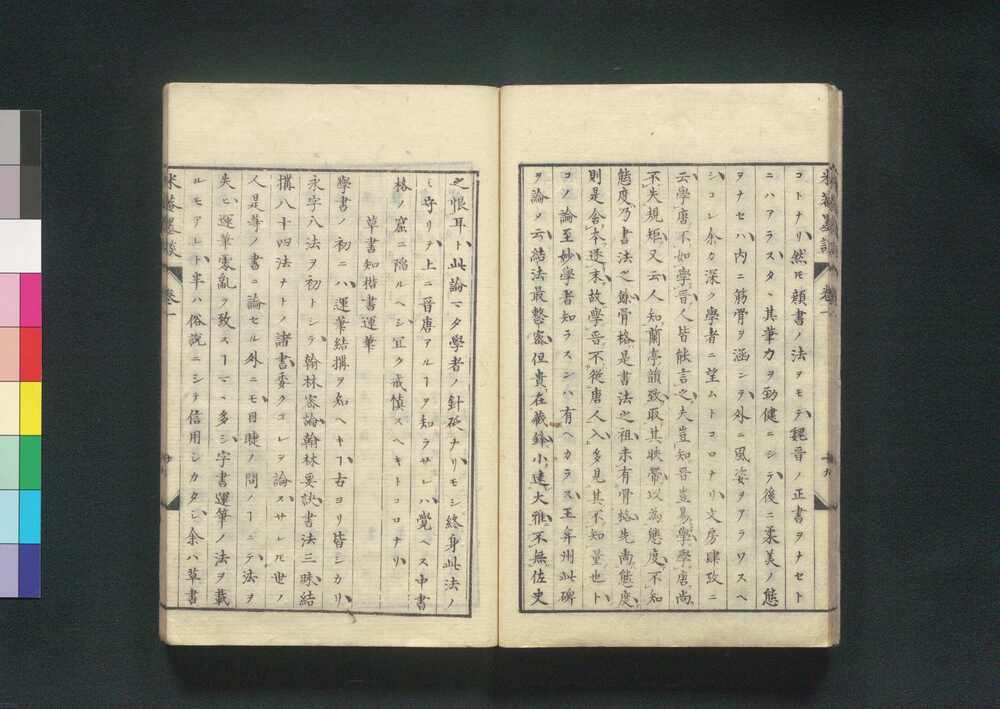 コトナリ然ㇳモ顔書ノ法ヲモテ魏晋ノ正書ヲナセト
ニハアラスタヽ其筆力ヲ勁健ニシテ後ニ柔美ノ態
ヲナセハ内ニ筋骨ヲ涵シテ外ニ風姿ヲアラワスヘ
シコレ余カ深ク學者ニ望ムトコロナリ文房肆攷ニ
云學唐不如學晋人皆能言之夫豈知晋豈易學學唐尚
不失規矩又云人知蘭亭韻致取其映帯以為態度不知
態度乃書法之餘骨格是書法之祖未有骨格先尚態度
則是舍本逐末故學晋不從唐人入多見其不知量也ト
コノ論至妙學者知ラスンハ有ヘカラス王弇州此碑
ヲ論メ云結法最整密但貴在藏鋒小遠大雅不無佐史
之恨耳ト此論マタ學者ノ針砭ナリモシ終身此法ノ
ミ守リテ上ニ晋唐アルヿヲ知ラサレハ覺ヘス中書
格ノ窟ニ陥ルヘシ冝ク戒慎スヘキトコロナリ
草書知楷書運筆
學書ノ初ニハ運筆結構ヲ知ヘキヿ古ヨリ皆シカリ
永字八法ヲ初トシテ翰林密論翰林要訣書法三昧結
構八十四法ナトノ諸書委クコレヲ論スサレㇳモ世ノ
人是等ノ書ニ論セル外ニモ目睫ノ間ノヿニテ法ヲ
失ヒ運筆零亂ヲ致スヿマヽ多シ字書運筆ノ法ヲ載
ルモアレト半ハ俗説ニシテ信用シカタシ余ハ草書
米菴墨談 巻一